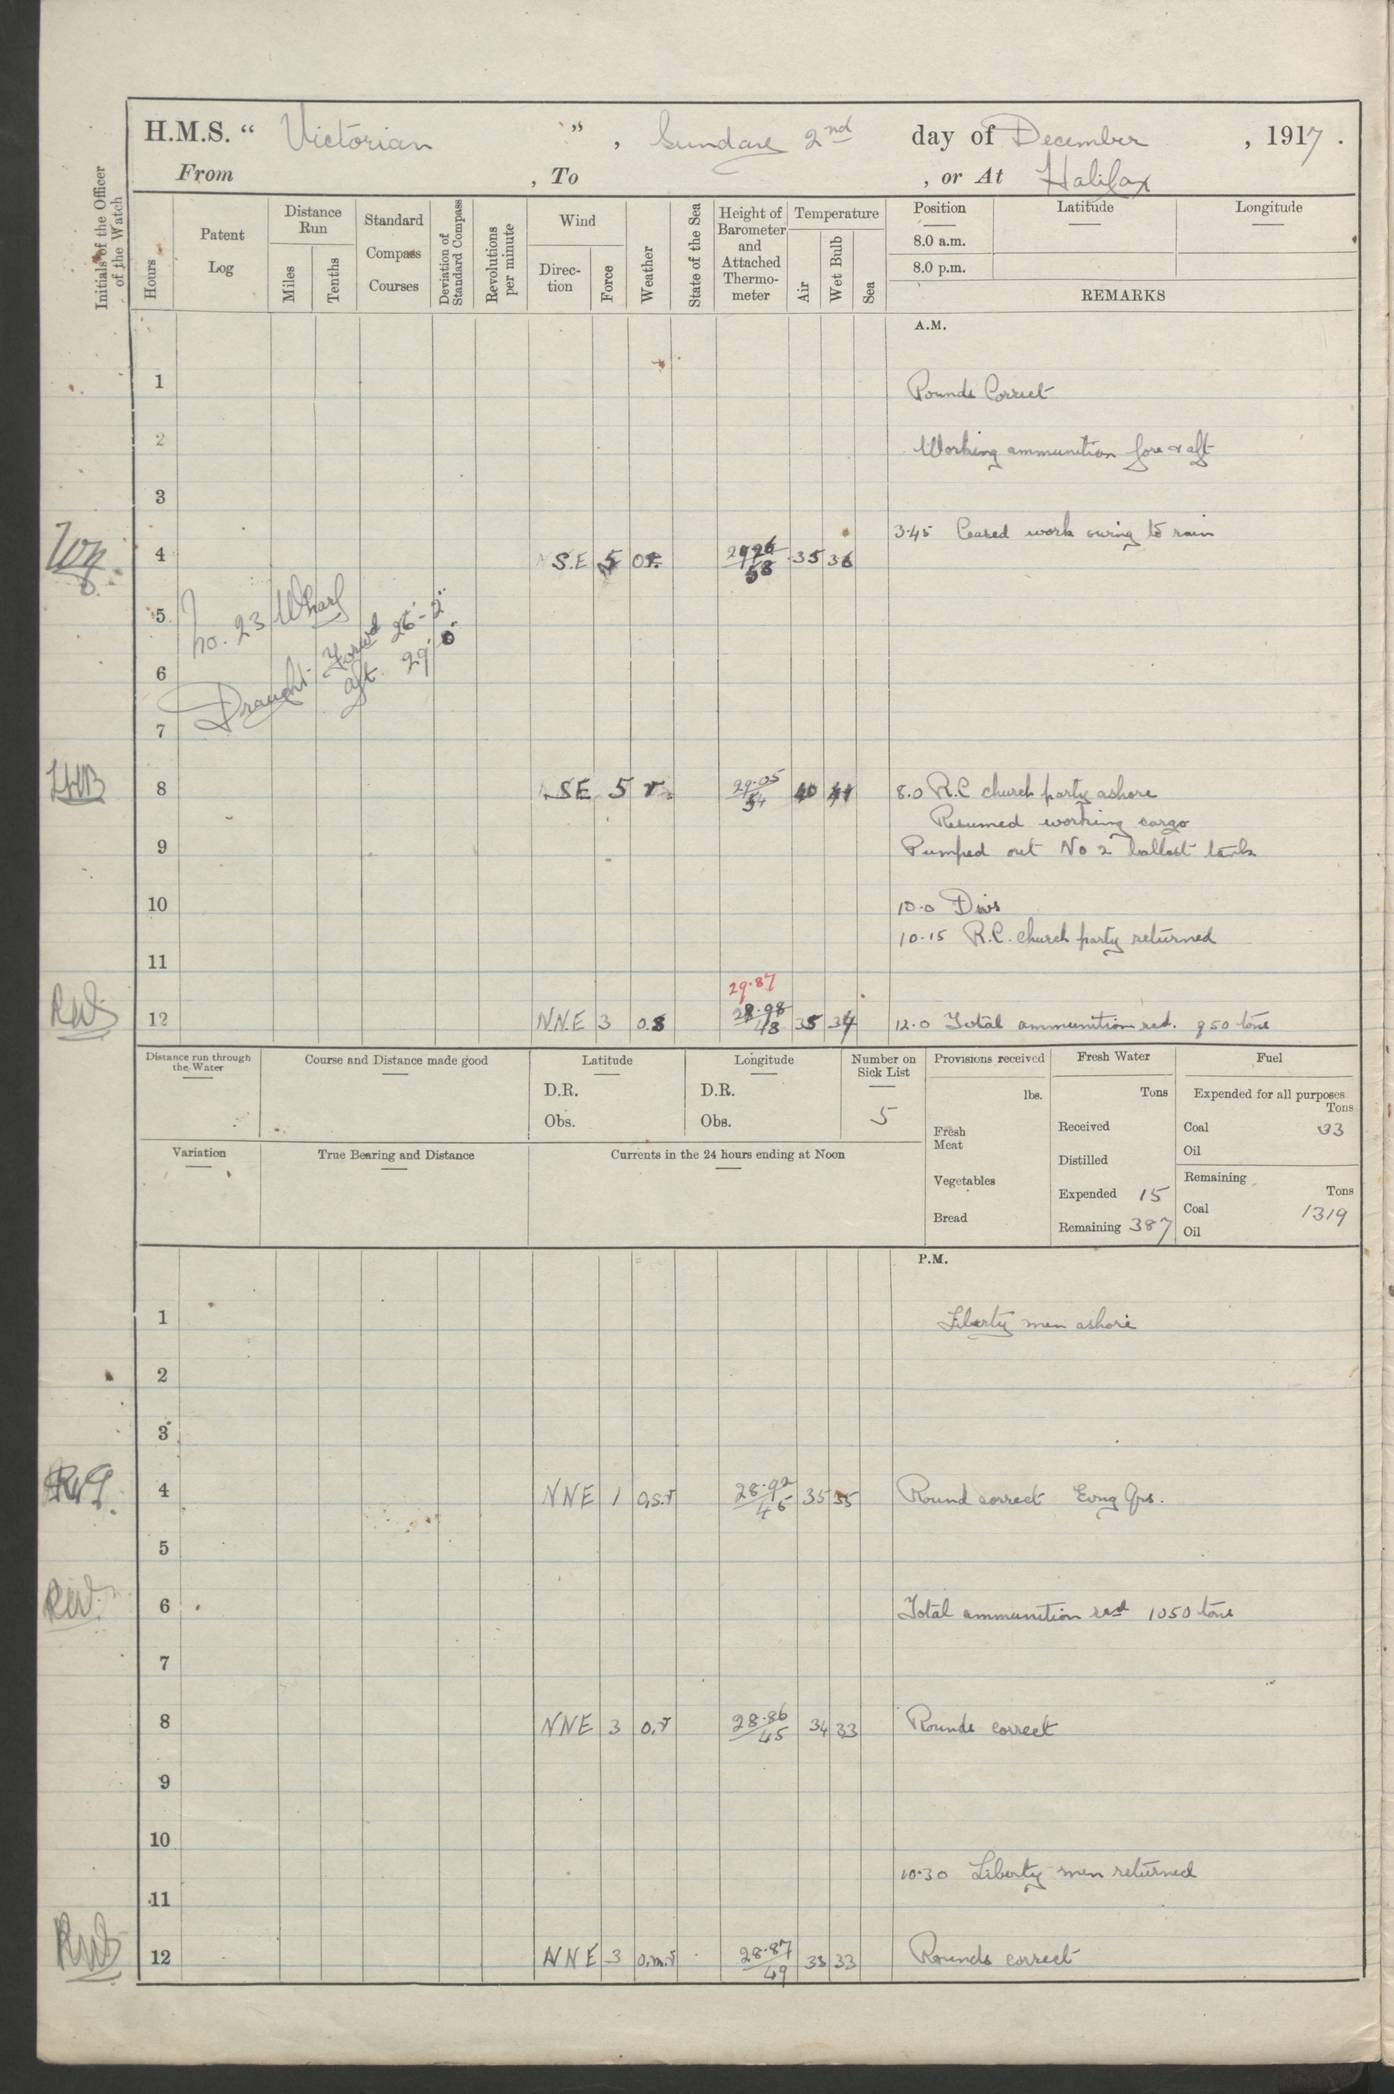 H.M.S. " Victorian " , Sunday 2nd day of December , 1917 .
From , To , or At Halifax
Initials of the Officer of the Watch
Hours
Patent Log
Distance Run
Miles
Tenths
Standard Compass Courses
Deviation of Standard Compass
Revolutions per minute
Wind
Direc-tion
Force
Weather
State of the Sea
Height of Barometer and Attached Thermo-meter
Temperature
Air
Wet Bulb
Sea
Position Latitude Longitude
8.0 a.m.
8.0 p.m.
REMARKS
A.M.
1 Rounds Correct
2 Working ammunition fore & aft
3
3.45 Ceased work owing to rain
4 S.E 5 29.26 58 35 36
5 No. 23 Wharf
6 Draught Forwd 26'-2"
aft. 29' 0"
7
LHB 8 SE 5 r. 29.05 54 40 41 8.0 R.C church party ashore
Resumed working cargo
9 Pumped out No 2 ballast tank
10 10.0 Divs
10.15 R.C. church party returned
11
29.87
12 N.N.E 3 o.s 28.98 48 35 34 12.0 Total ammunition red. 950 tons
Distance run through the Water
Course and Distance made good
Latitude
D.R.
Obs.
Longitude
D.R.
Obs.
Number on Sick List
5
Provisions received
lbs.
Fresh Meat
Vegetables
Bread
Fresh Water
Tons
Received
Distilled
Expended 15
Remaining 387
Fuel
Expended for all purposes
Tons
Coal 33
Oil
Remaining
Tons
Coal 1319
Oil
Variation
True Bearing and Distance
Currents in the 24 hours ending at Noon
P.M.
1 Liberty men ashore
2
3
4 NNE 1 o,s.r 28.92 46 35 35 Round correct Evng Qrs.
5
RW. 6 Total ammunition recd 1050 tons
7
8 NNE 3 o.r 28.86 45 34 33 Rounds correct
9
10
10.30 Liberty men returned
11
12 NNE 3 o.m.r 28.87 49 33 33 Rounds correct